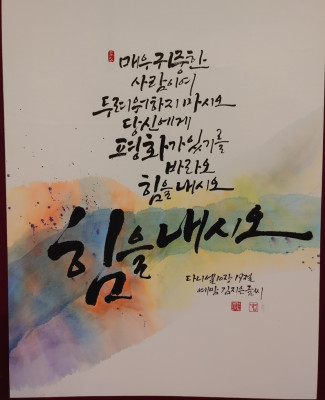 매우 귀중한
사람이여
두려워하지 마시오
당신에게
평화가 있기를
바라오
힘을 내시오
힘을 내시오
다니엘 10장 19절
김지은 글씨